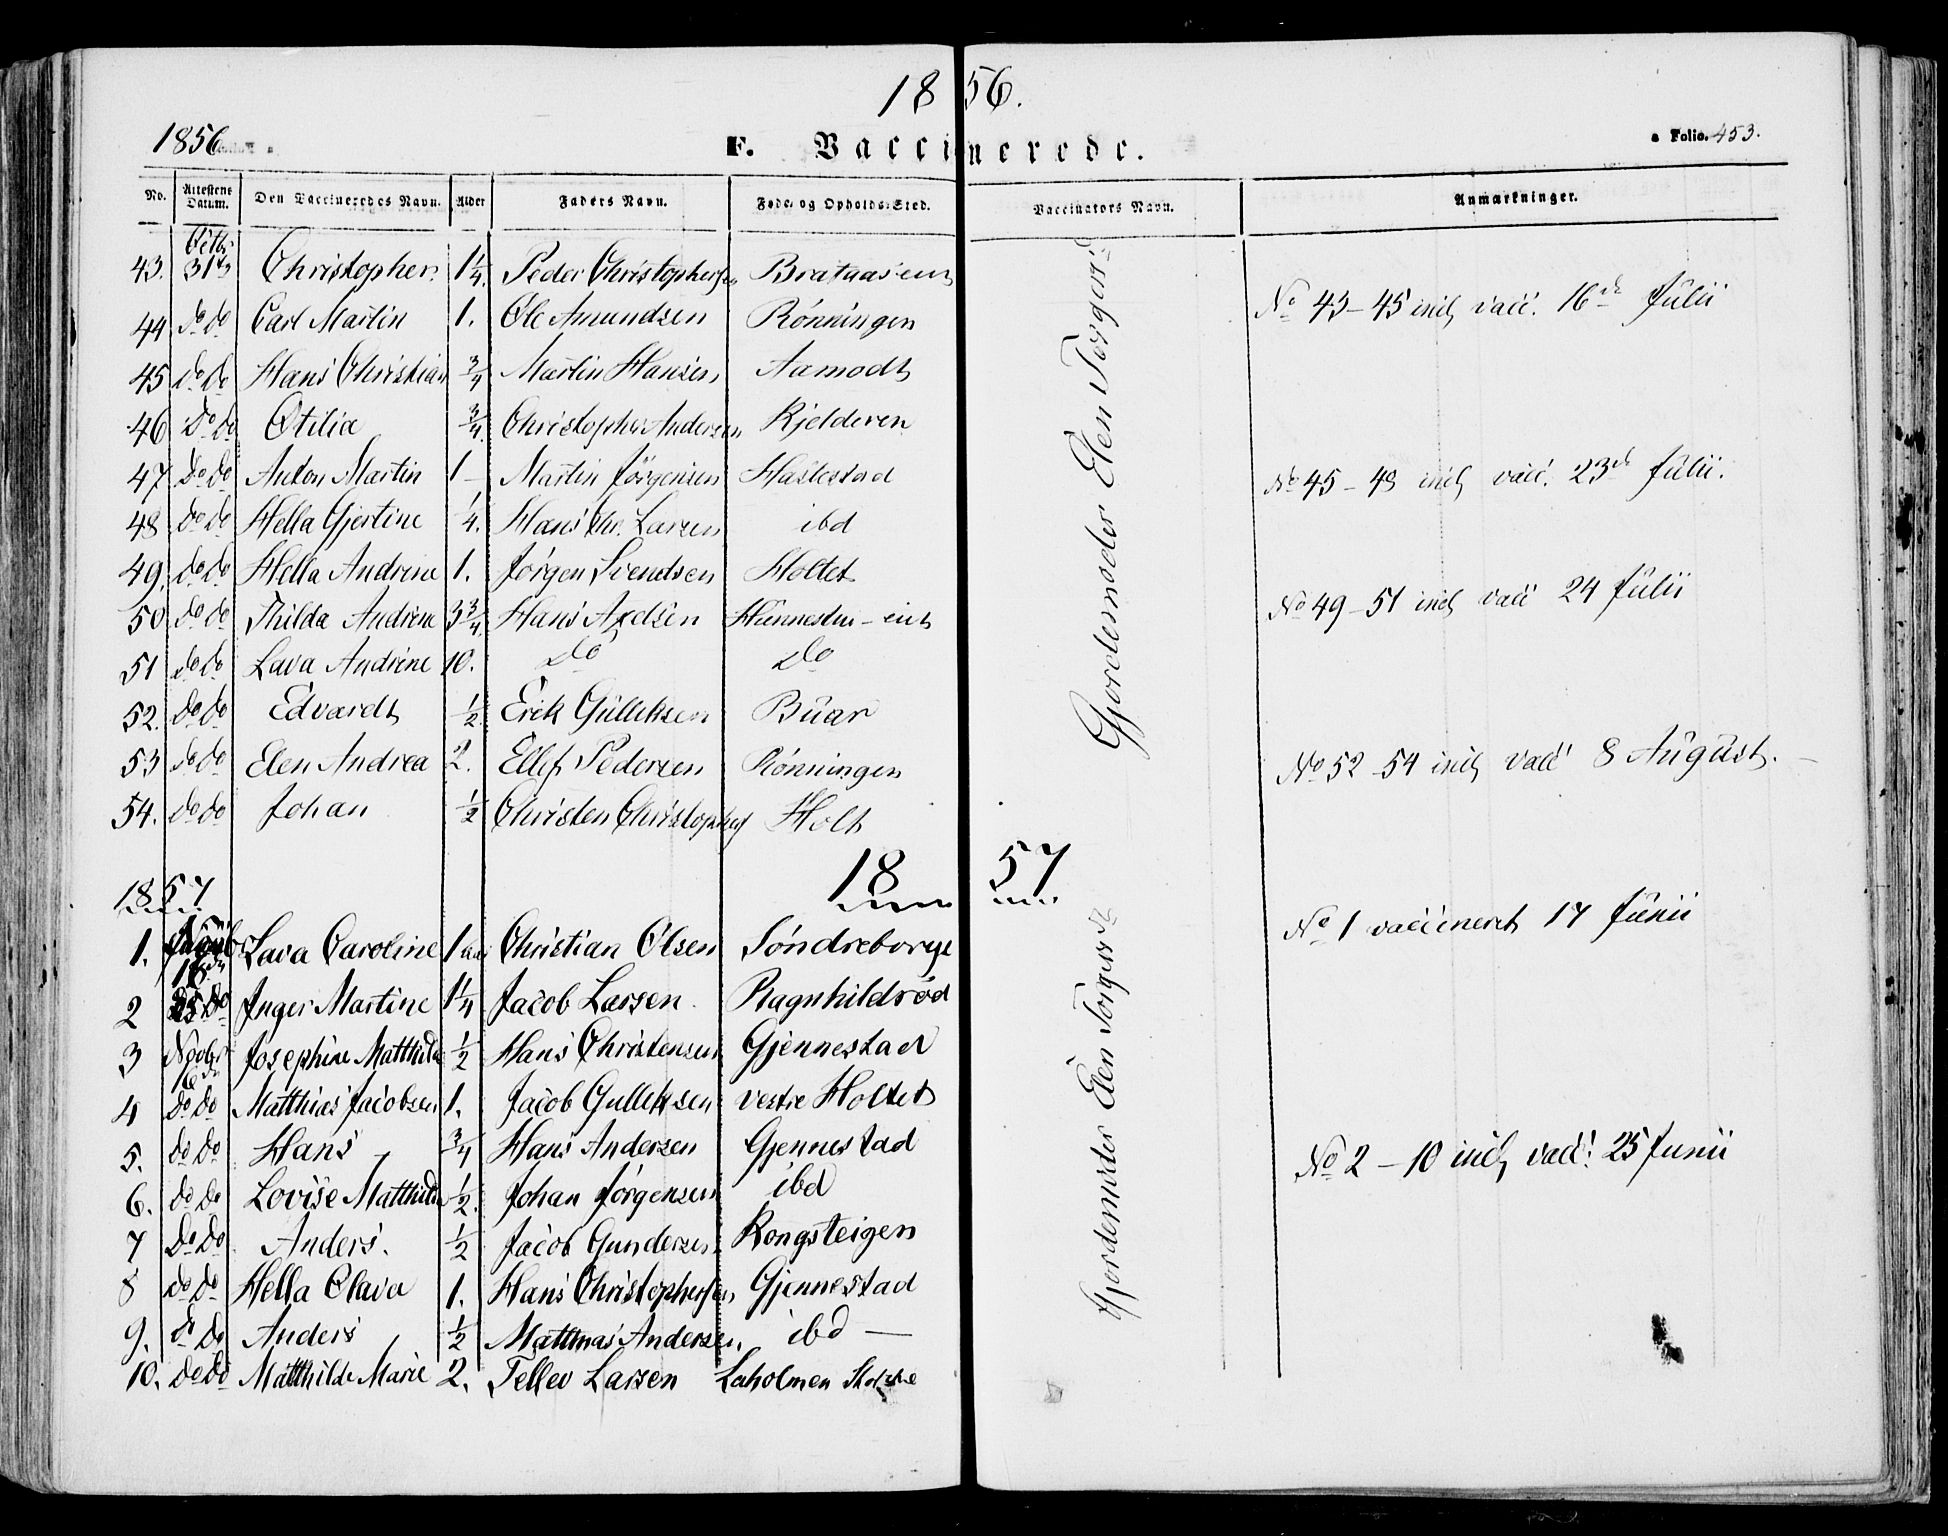 1856.
1856
F. Vaccinerede.
Folio. 453.
No. Attestens Datum. Den Vaccineredes Navn. Alder Faders Navn. Føde- og Opholds-Sted. Vaccinators Navn. Anmærkninger.
Octbr
43. 31te Christopher 1 1/4. Peder Christophersen Brataasen
No 43-45 incl vacc. 16de Julii
44 do do Carl Martin 1. Ole Amundsen Rönningen
45 do do Hans Christian 3/4 Martin Hansen Aamodt
46 Do Do Otilia 3/4. Christopher Andersen Kjelderen
47 Do Do Anton Martin 1 - Martin Jörgensen Haslestad
No 45-48 incl vacc. 23de Julii.
48 do do Hella Gjertine 1/4. Hans Chr. Larsen ibd
49. do do Hella Andrine 1. Jörgen Svendsen Holtet
50. do do Thilda Andrine 3 3/4. Hans
No 49-51 incl vacc 24 Julii
51 do do Lava Andrine 10. do do
52. do do Edvardt 1/2 Erik Gulliksen Buar
53 do do Elen Andrea 2. Ellef Pedersen Rönningen
No 52-54 incl vacc 8 August. -
54. do do Johan 1/2 Christen Christophers Holt
Gjordemoder Elen Torgers
1857
1857
1. Lava Caroline 1 aar Christian Olsen Söndreborge
No 1 vaccineret 17 Junii
2 Do Inger Martine 1 1/4 Jacob Larsen Ragnhildröd
3 Novbr Josephine Matthilde 1/2 Hans Christensen Gjennestad
4 Do Do Matthias Jacobsen 1. Jacob Gulliksen vestre Holtet
5. do do Hans - 3/4 Hans Andersen Gjennestad
No 2-10 incl vacc: 25 Junii
6. do do Lovise Matthilde 1/2. Johan Jörgensen ibd
7 Do Do Anders. 1/2 Jacob Gundersen Kongsteigen
8 do do Hella Olava 1. Hans Christophersen Gjennestad
9. do Do Anders 1/2 Matthias Andersen. ibd -
10. do do Matthilde Marie 2. Tellev Larsen Laholmen
Elen Torgers